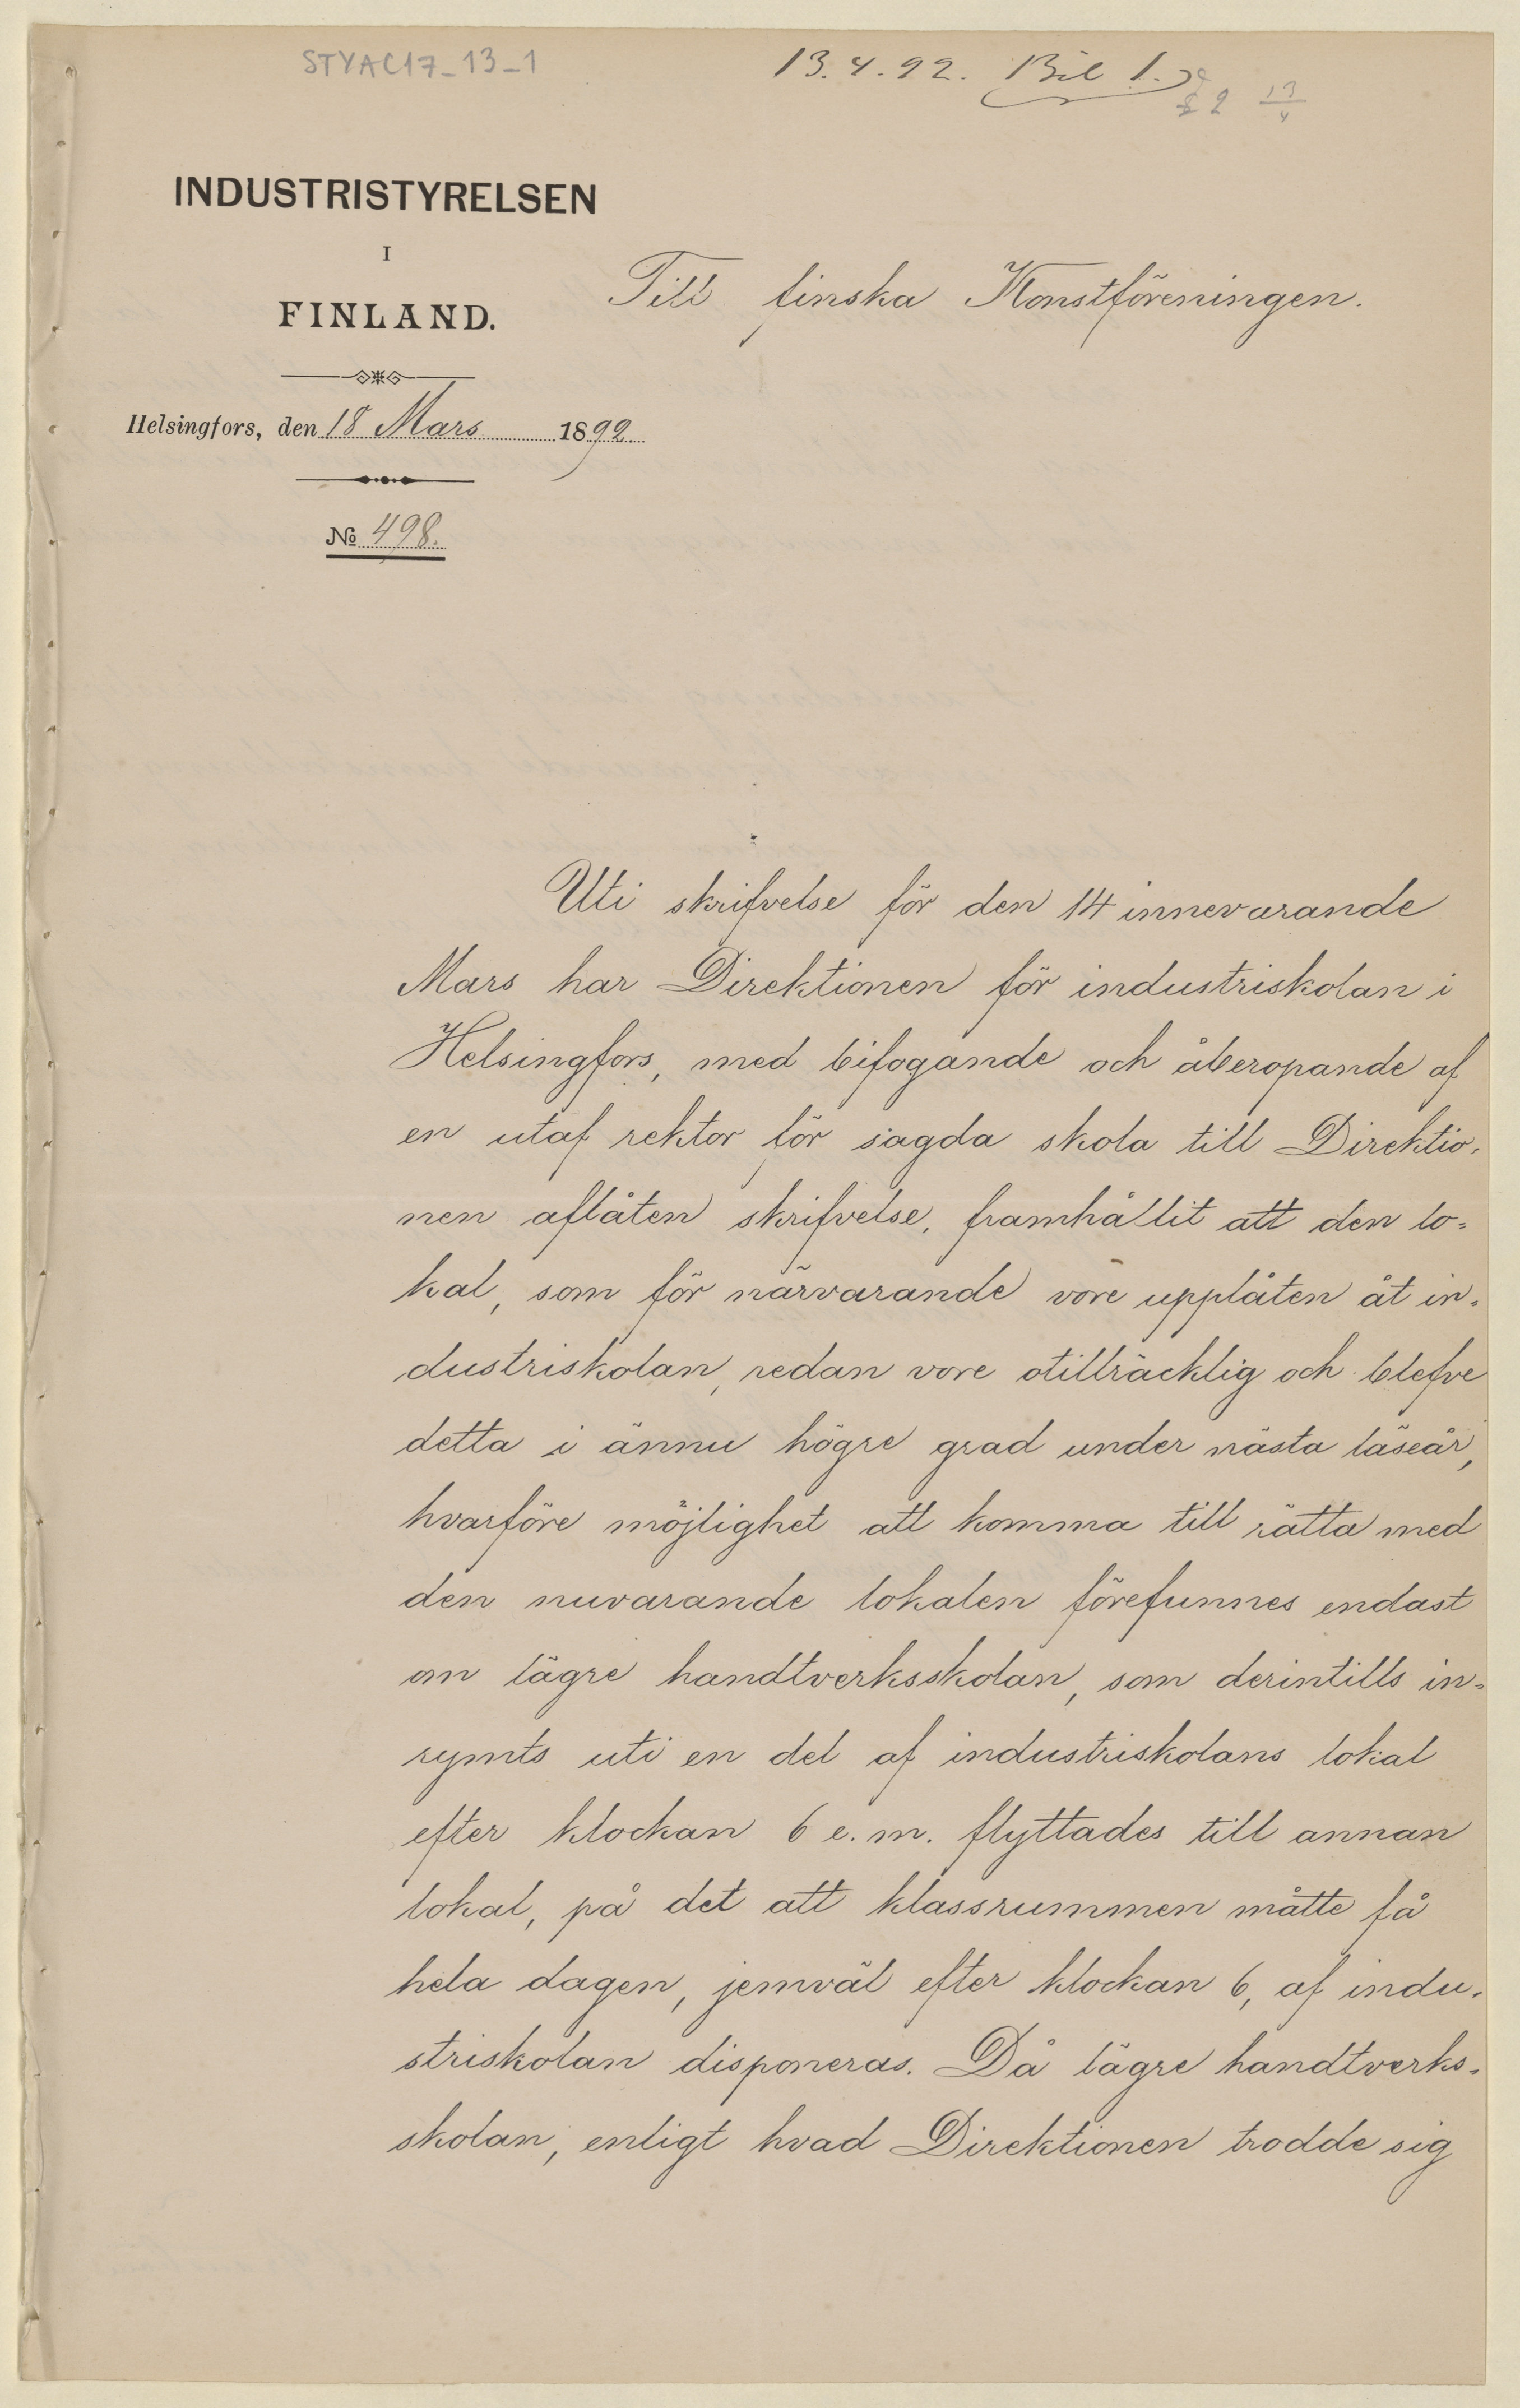 STYAC17_13_1
13.4.92. Bil 1.
2 13/4
INDUSTRISTYRELSEN
I
FINLAND.
Till finska Konstföreningen.
Helsingfors, den 18 Mars 1892
No 498.
Uti skrifvelse för den 14 innevarande
Mars har Direktionen för industriskolan i
Helsingfors, med bifogande och åberopande af
en utaf rektor för sagda skola till Direktio-
nen aflåten skrifvelse, framhållit att den lo-
kal, som för närvarande vore upplåten åt in-
dustriskolan, redan vore otillräcklig och blefve
detta i ännu högre grad under nästa läseår,
hvarföre möjlighet att komma till rätta med
den nuvarande lokalen förefunnes endast
om lägre handtverksskolan, som derintills in-
rymts uti en del af industriskolans lokal
efter klockan 6 e.m. flyttades till annan
lokal, på det att klassrummen måtte få
hela dagen, jemväl efter klockan 6, af indu-
striskolan disponeras. Då lägre handtverks-
skolan, enligt hvad Direktionen trodde sig